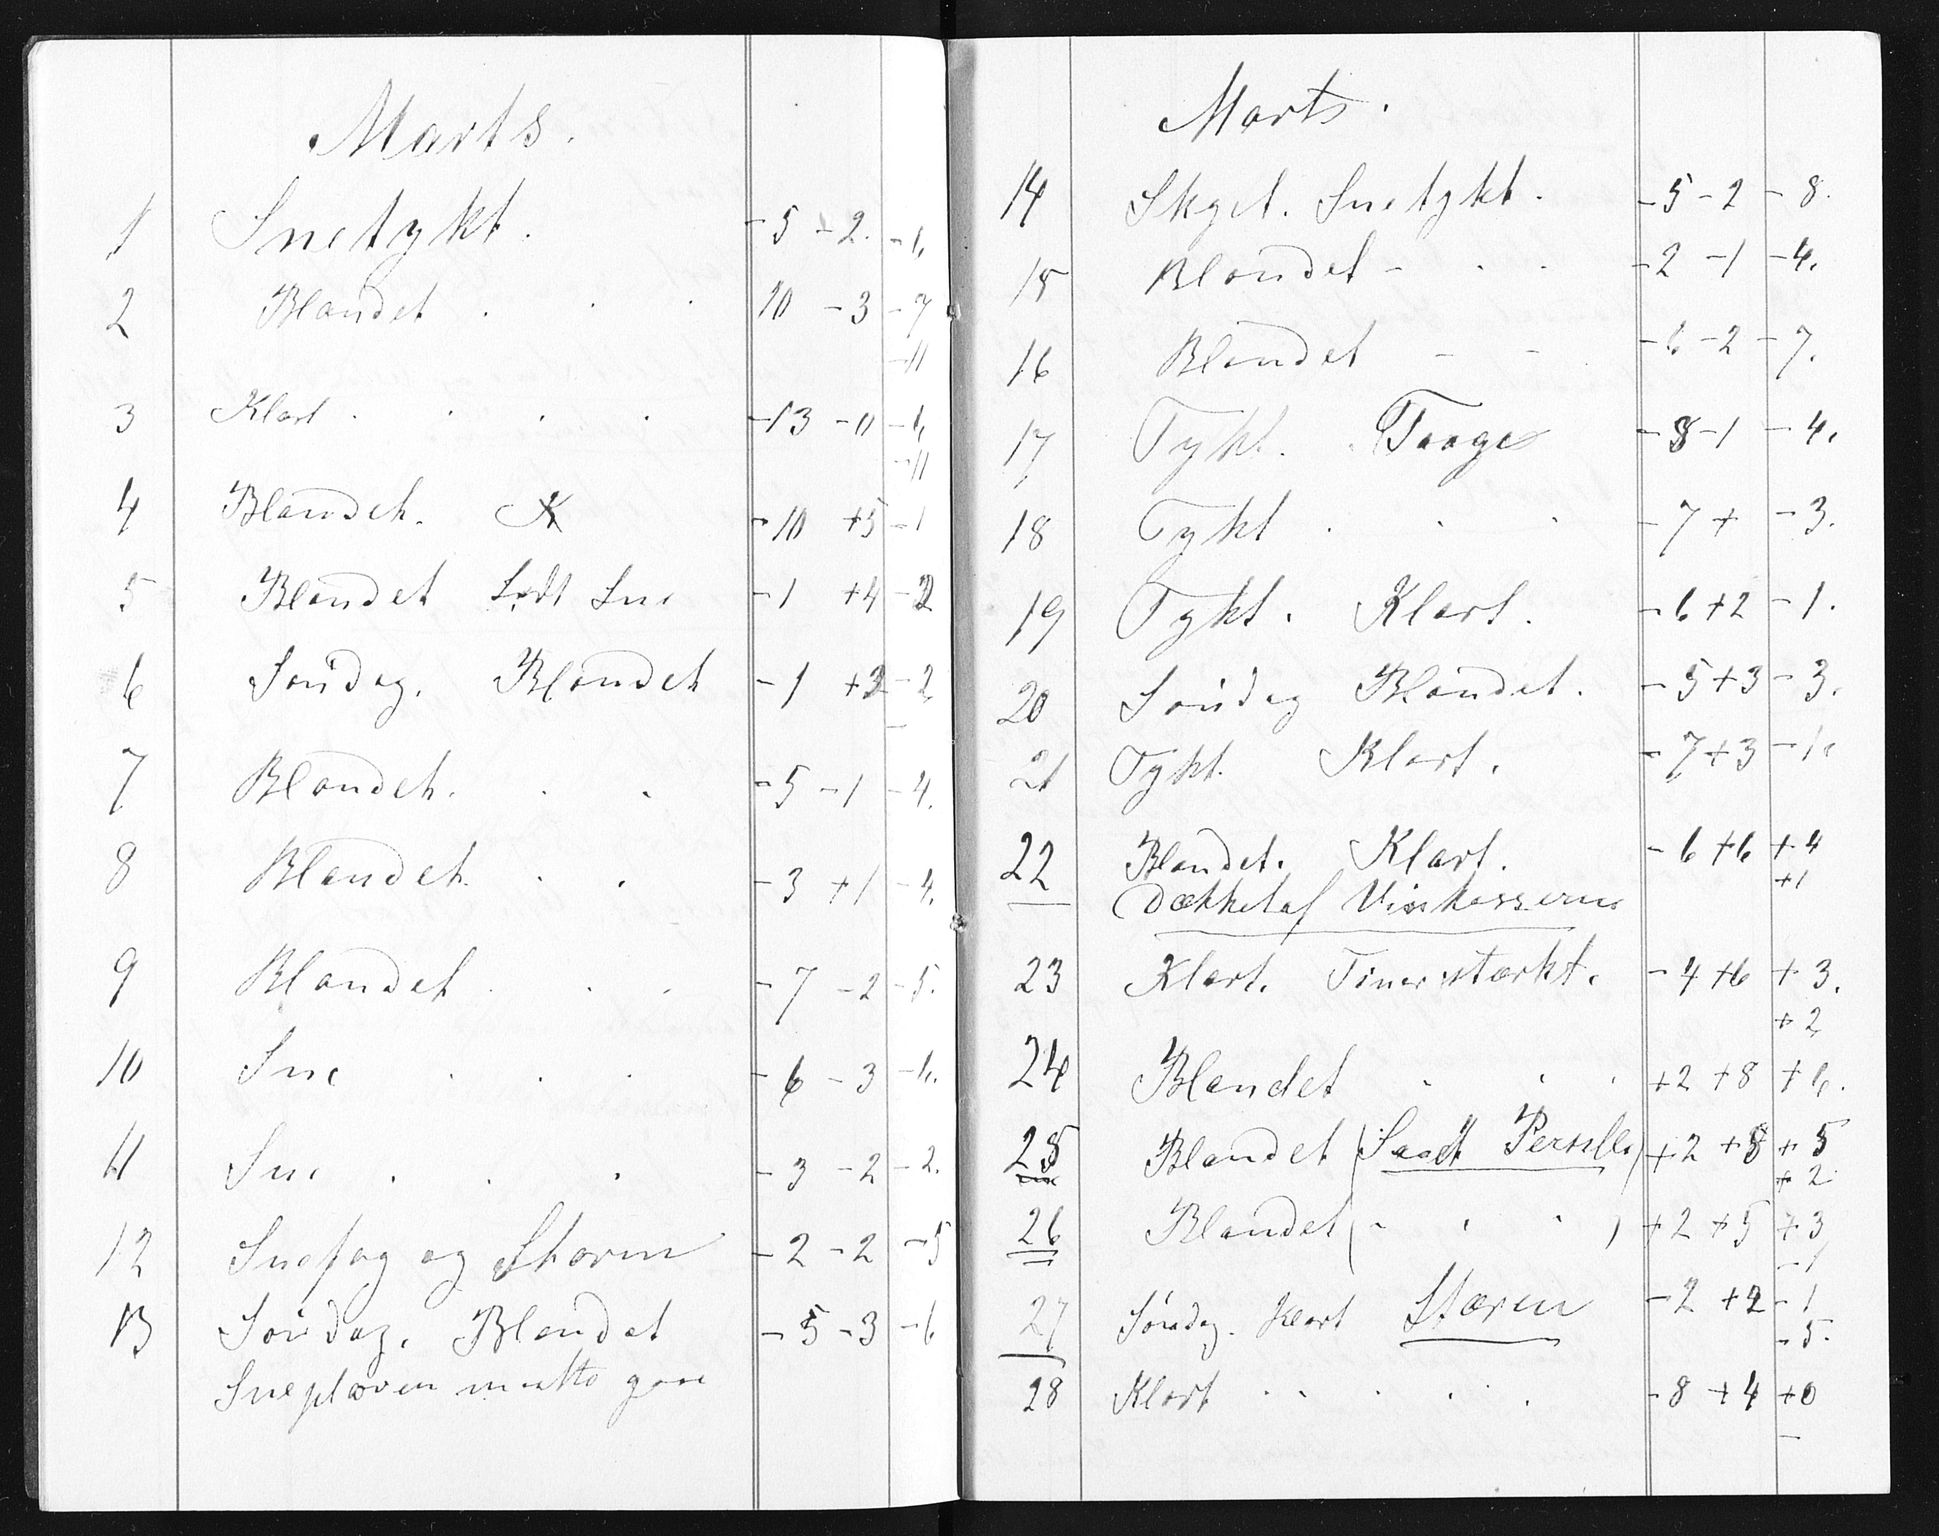 Marts.
1 Snetykt. -5 -2. -6.
2 Blandet . . . 10 -3 -7
-11
3 Klart . . . . -13 -11 -6.
-11
4 Blandet. -10 +5 -1
5 Blandet Lidt Sne -1 +4 -2
6 Søndag. Blandet -1 +3 -2
7 Blandet. . . -5 -1 -4.
8 Blandet. . . -3 +1 -4.
9 Blandet . . . -7 -2 -5.
10 Sne . . . -6 -3 -6.
11 Sne . . . -3 -2 -2.
12 Snefog og Storm -2 -2 -5
13 Søndag. Blandet -5 -3 -6
Sneploven matte gaae
Marts.
14 Skyet. Snetykt. -5 -2 -8.
15 Blandet - . . -2 -1 -4.
16 Blandet - - -6 -2 -7.
17 Tykt. Taage -8 -1 -4.
18 Tykt . . . -7 + -3.
19 Tykt. Klart. -6 +2 -1.
20 Søndag Blandet. -5 +3 -3.
21 Tykt. Klart. -7 +3 -1.
22 Blandet. Klart. -6 +6 +4
+1
Dækket af Vinkasserne
23 Klart. -4 +6 +3.
+2
24 Blandet . . . +2 +8 +6.
25 Blandet (Saadt Persille) +2 +8 +5
+2
26 Blandet ( - . . ) +2 +5 +3
-1
27 Søndag. Klart Stæren -2 +2 -1
-5.
28 Klart . . . . . -8 +4 +0